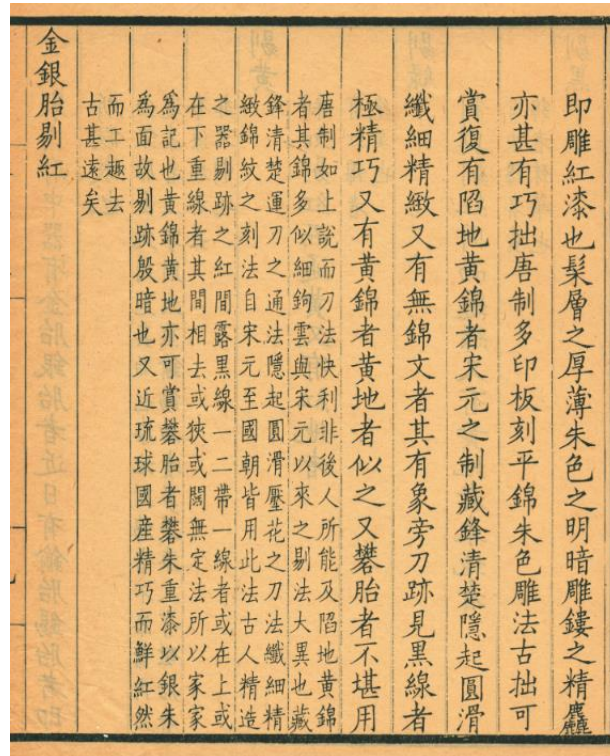 即雕紅漆也髹層之厚薄朱色之明暗雕鏤之精麤
亦甚有巧拙唐制多印板刻平錦朱色雕法古拙可
賞復有陷地黃錦者宋元之制藏鋒清楚隱起圓滑
纖細精緻又有無錦文者其有象旁刀跡見黑線者
極精巧又有黃錦者黃地者似之又礬胎者不堪用
唐制如上說而刀法快利非後人所能及陷地黃錦
者其錦多似細鉤雲與宋元以來之剔法大異也藏
鋒清楚運刀之通法隱起圓滑壓花之刀法纖細精
緻錦紋之刻法自宋元至國朝皆用此法古人精造
之器剔跡之紅間露黑線一二帶一線者或在上或
在下重線者其間相去或狹或闊無定法所以家家
爲記也黃錦黃地亦可賞礬胎者礬朱重漆以銀朱
爲面故剔跡殷暗也又近琉球國産精巧而鮮紅然
而工趣去
古甚遠矣
金銀胎剔紅